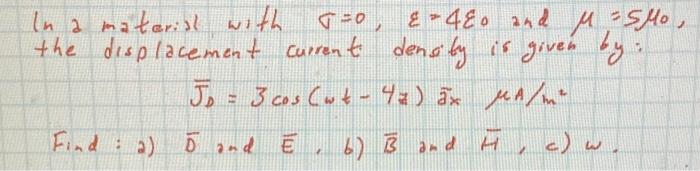 In a material with σ=0, ε=4ε0 and μ=5μ0,
the displacement current density is given by:
J̄D = 3 cos(ωt - 4z) āx μA/m²
Find: a) D̄ and Ē, b) B̄ and H̄, c) ω.